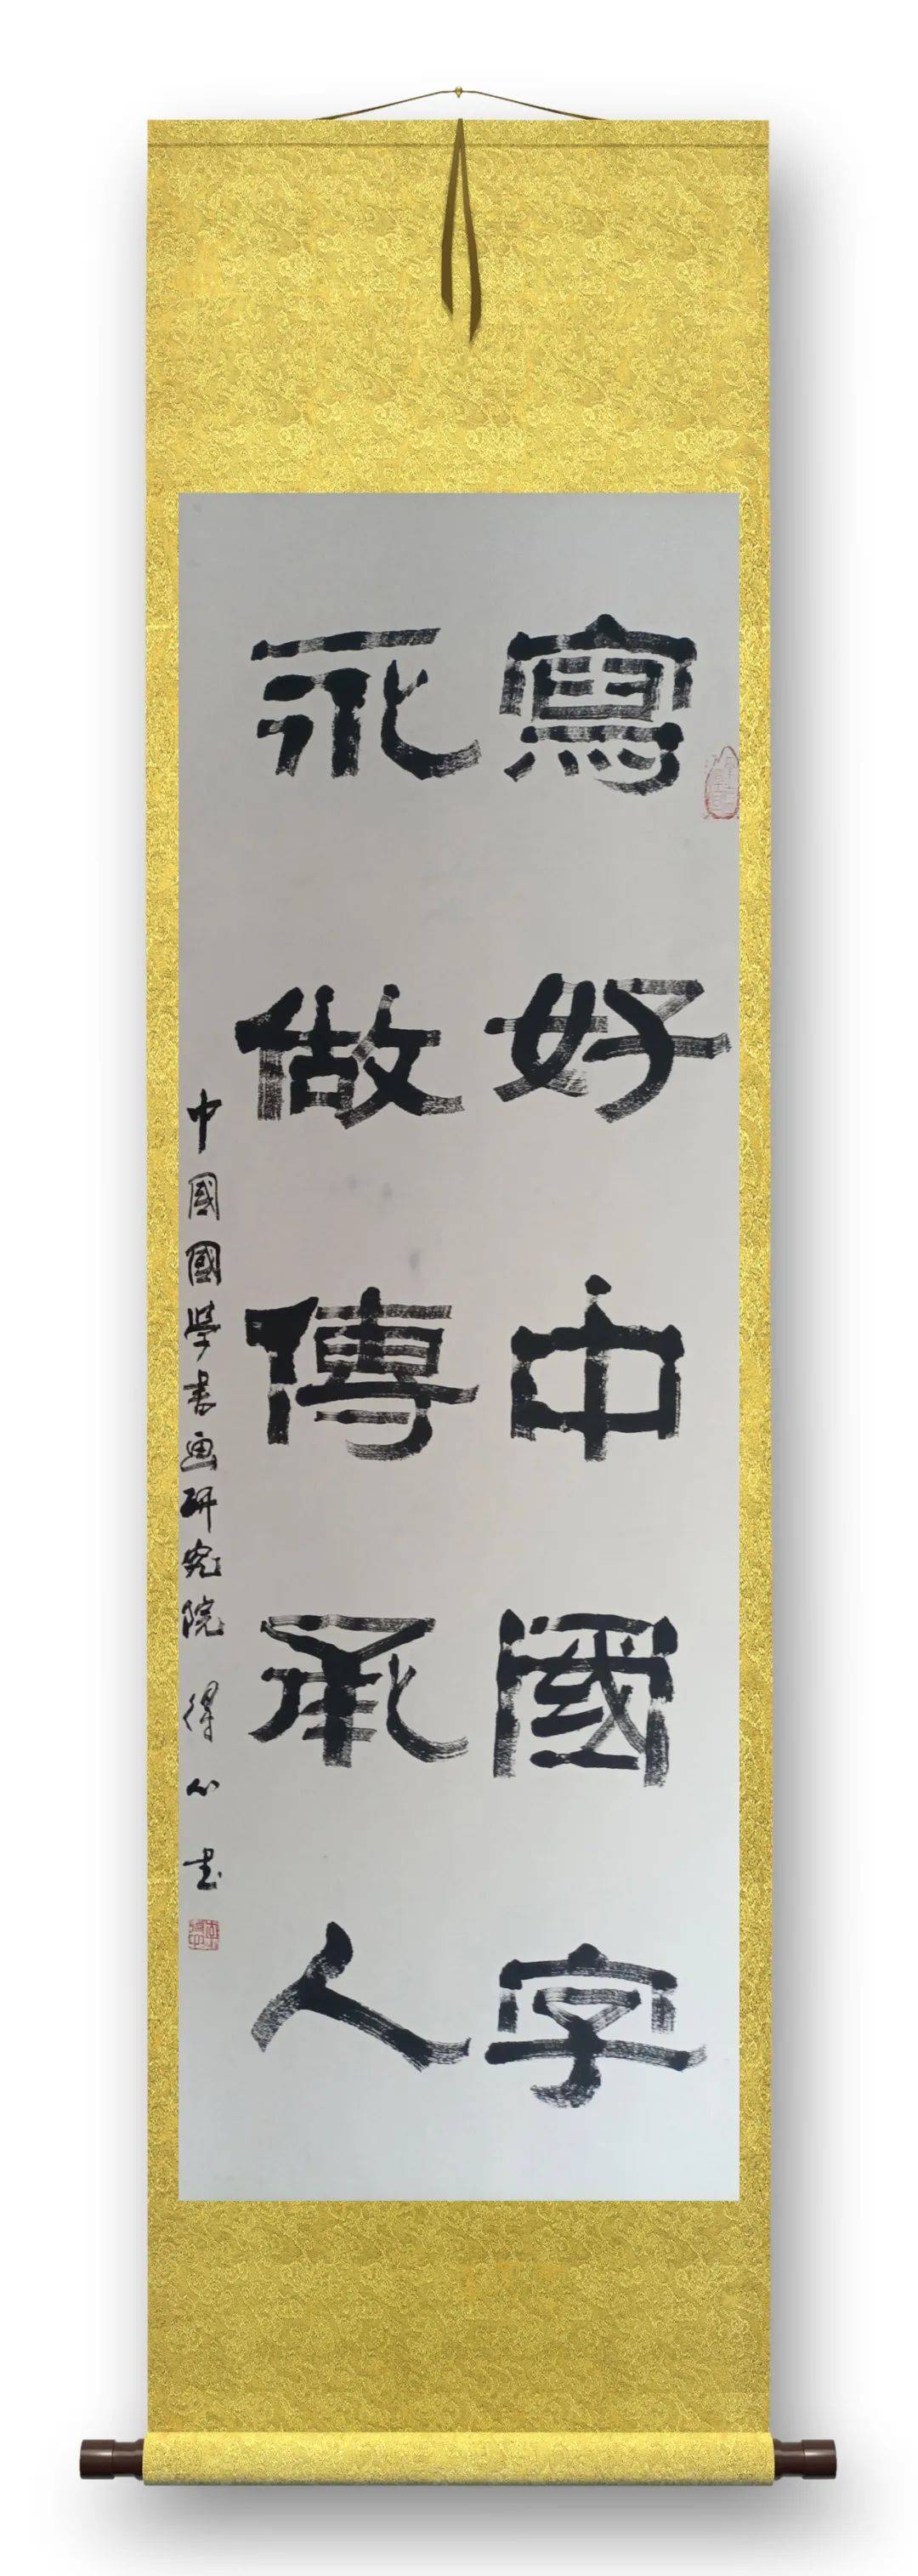 寫好中國字
永做傳承人
中國國學書画研究院 得心书